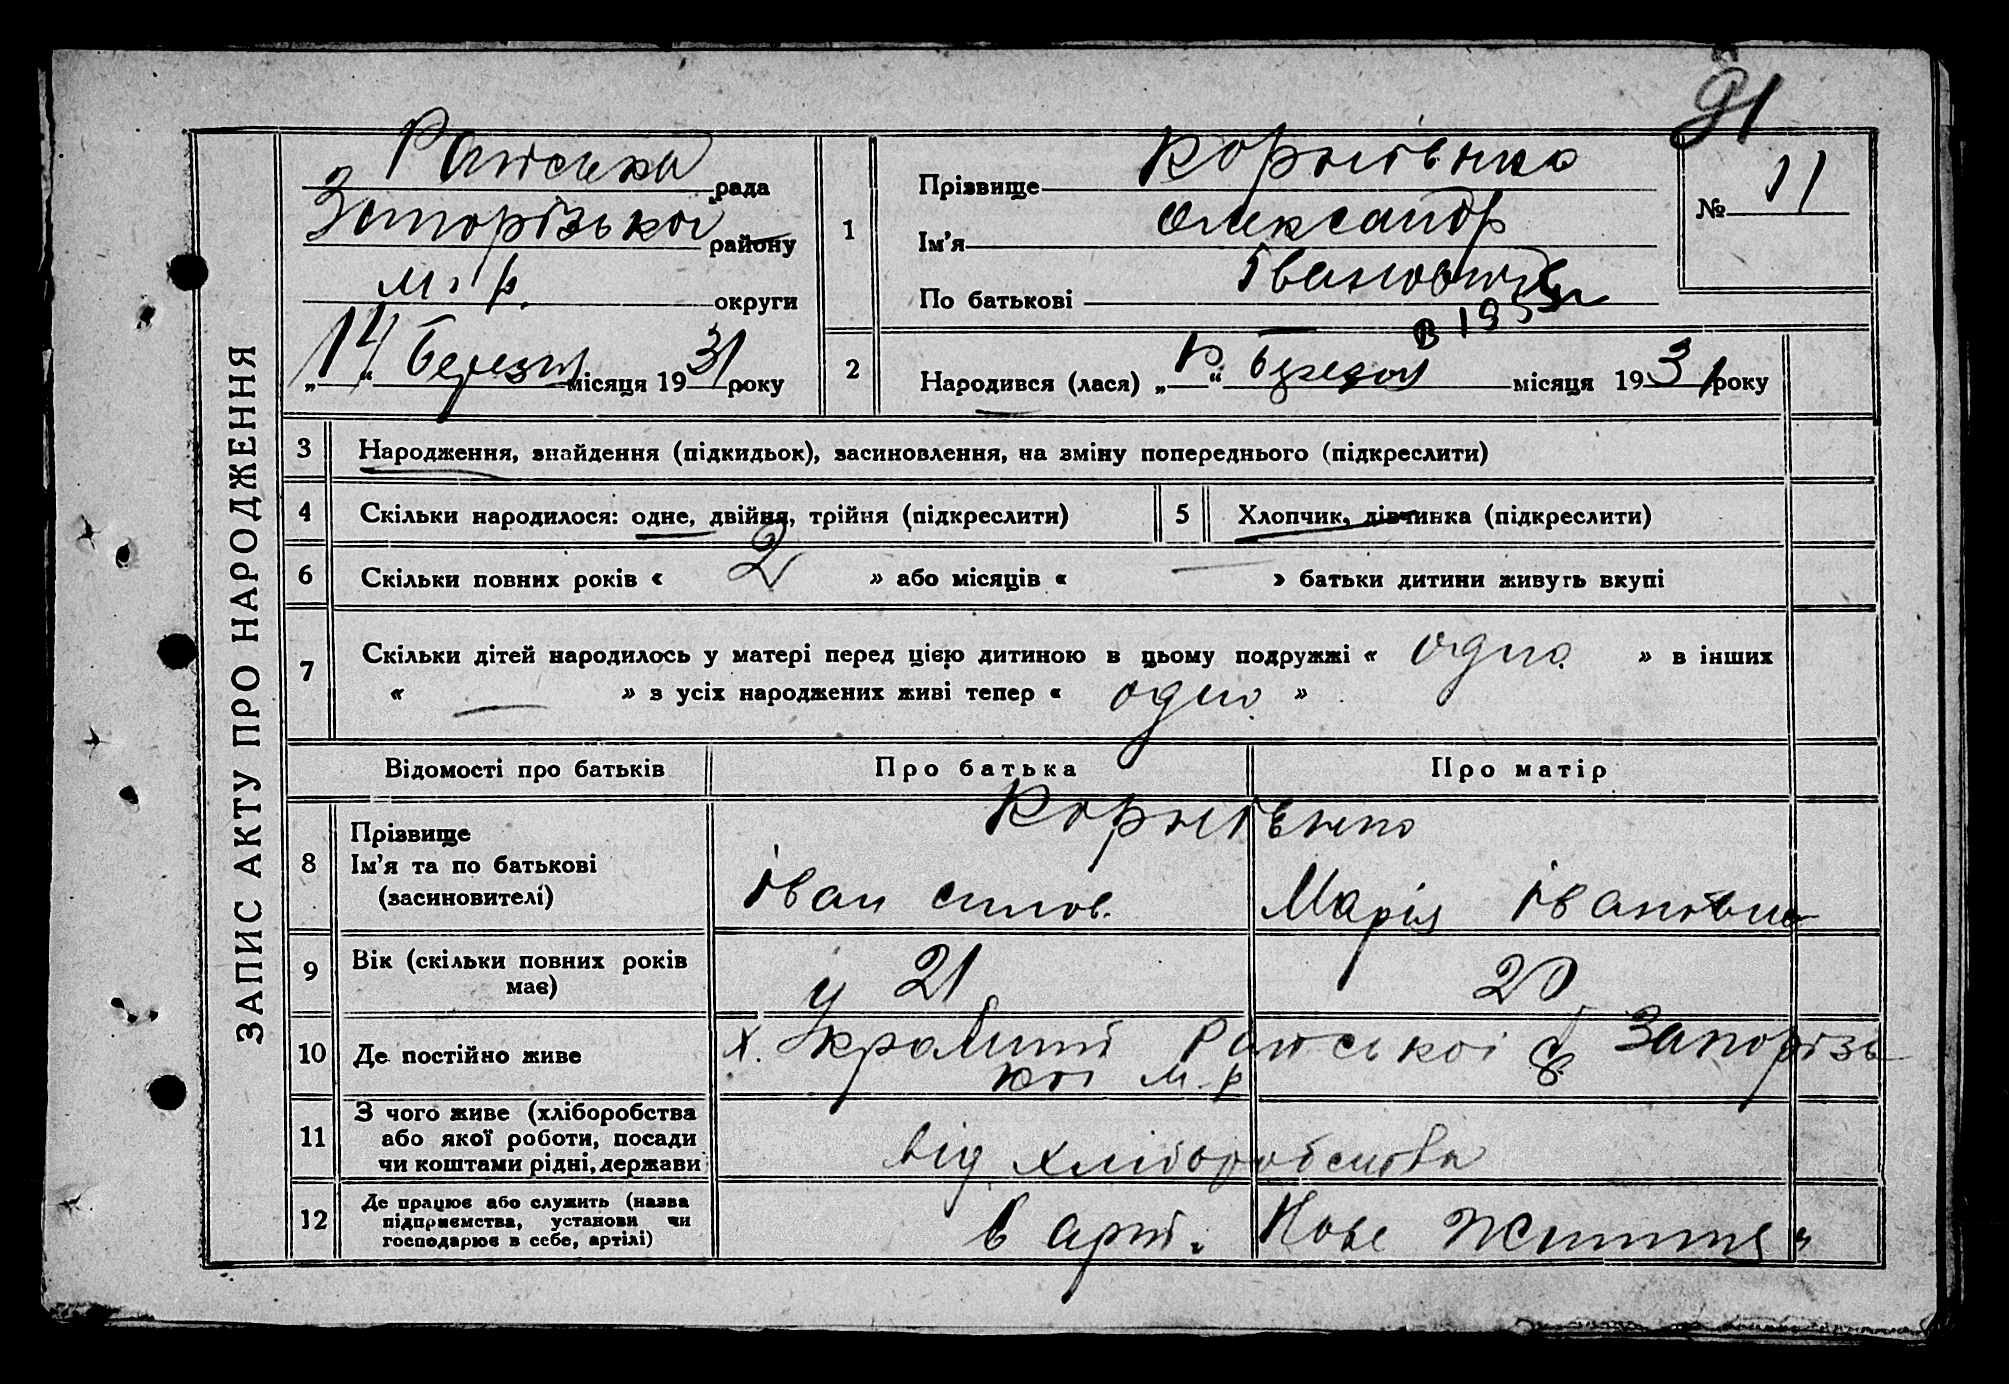 91
ЗАПИС АКТУ ПРО НАРОДЖЕННЯ
рада
Запорізької району
м. р. округи
„14“ Березня місяця 1931 року
1
Прізвище
Ім'я Олександр
По батькові Іванович
№ 11
в 195
2
Народився (лася) „ “ Березня місяця 1931 року
3 Народження, знайдення (підкидьок), засиновлення, на зміну попереднього (підкреслити)
4 Скільки народилося: одне, двійня, трійня (підкреслити)
5 Хлопчик, дівчинка (підкреслити)
6 Скільки повних років « 2 » або місяців « — » батьки дитини живуть вкупі
7 Скільки дітей народилось у матері перед цією дитиною в цьому подружжі « одно » в інших
« — » з усіх народжених живі тепер « одно »
Відомості про батьків Про батька Про матір
8 Прізвище
Ім'я та по батькові
(засиновителі)
Іван Марія Івановна
9 Вік (скільки повних років
має)
21 20
10 Де постійно живе
х. Запорізь
кої м. р
11 З чого живе (хліборобства
або якої роботи, посади
чи коштами рідні, держави
від хліборобства
12 Де працює або служить (назва
підприємства, установи чи
господарює в себе, артілі)
в арт. Нове Життя"